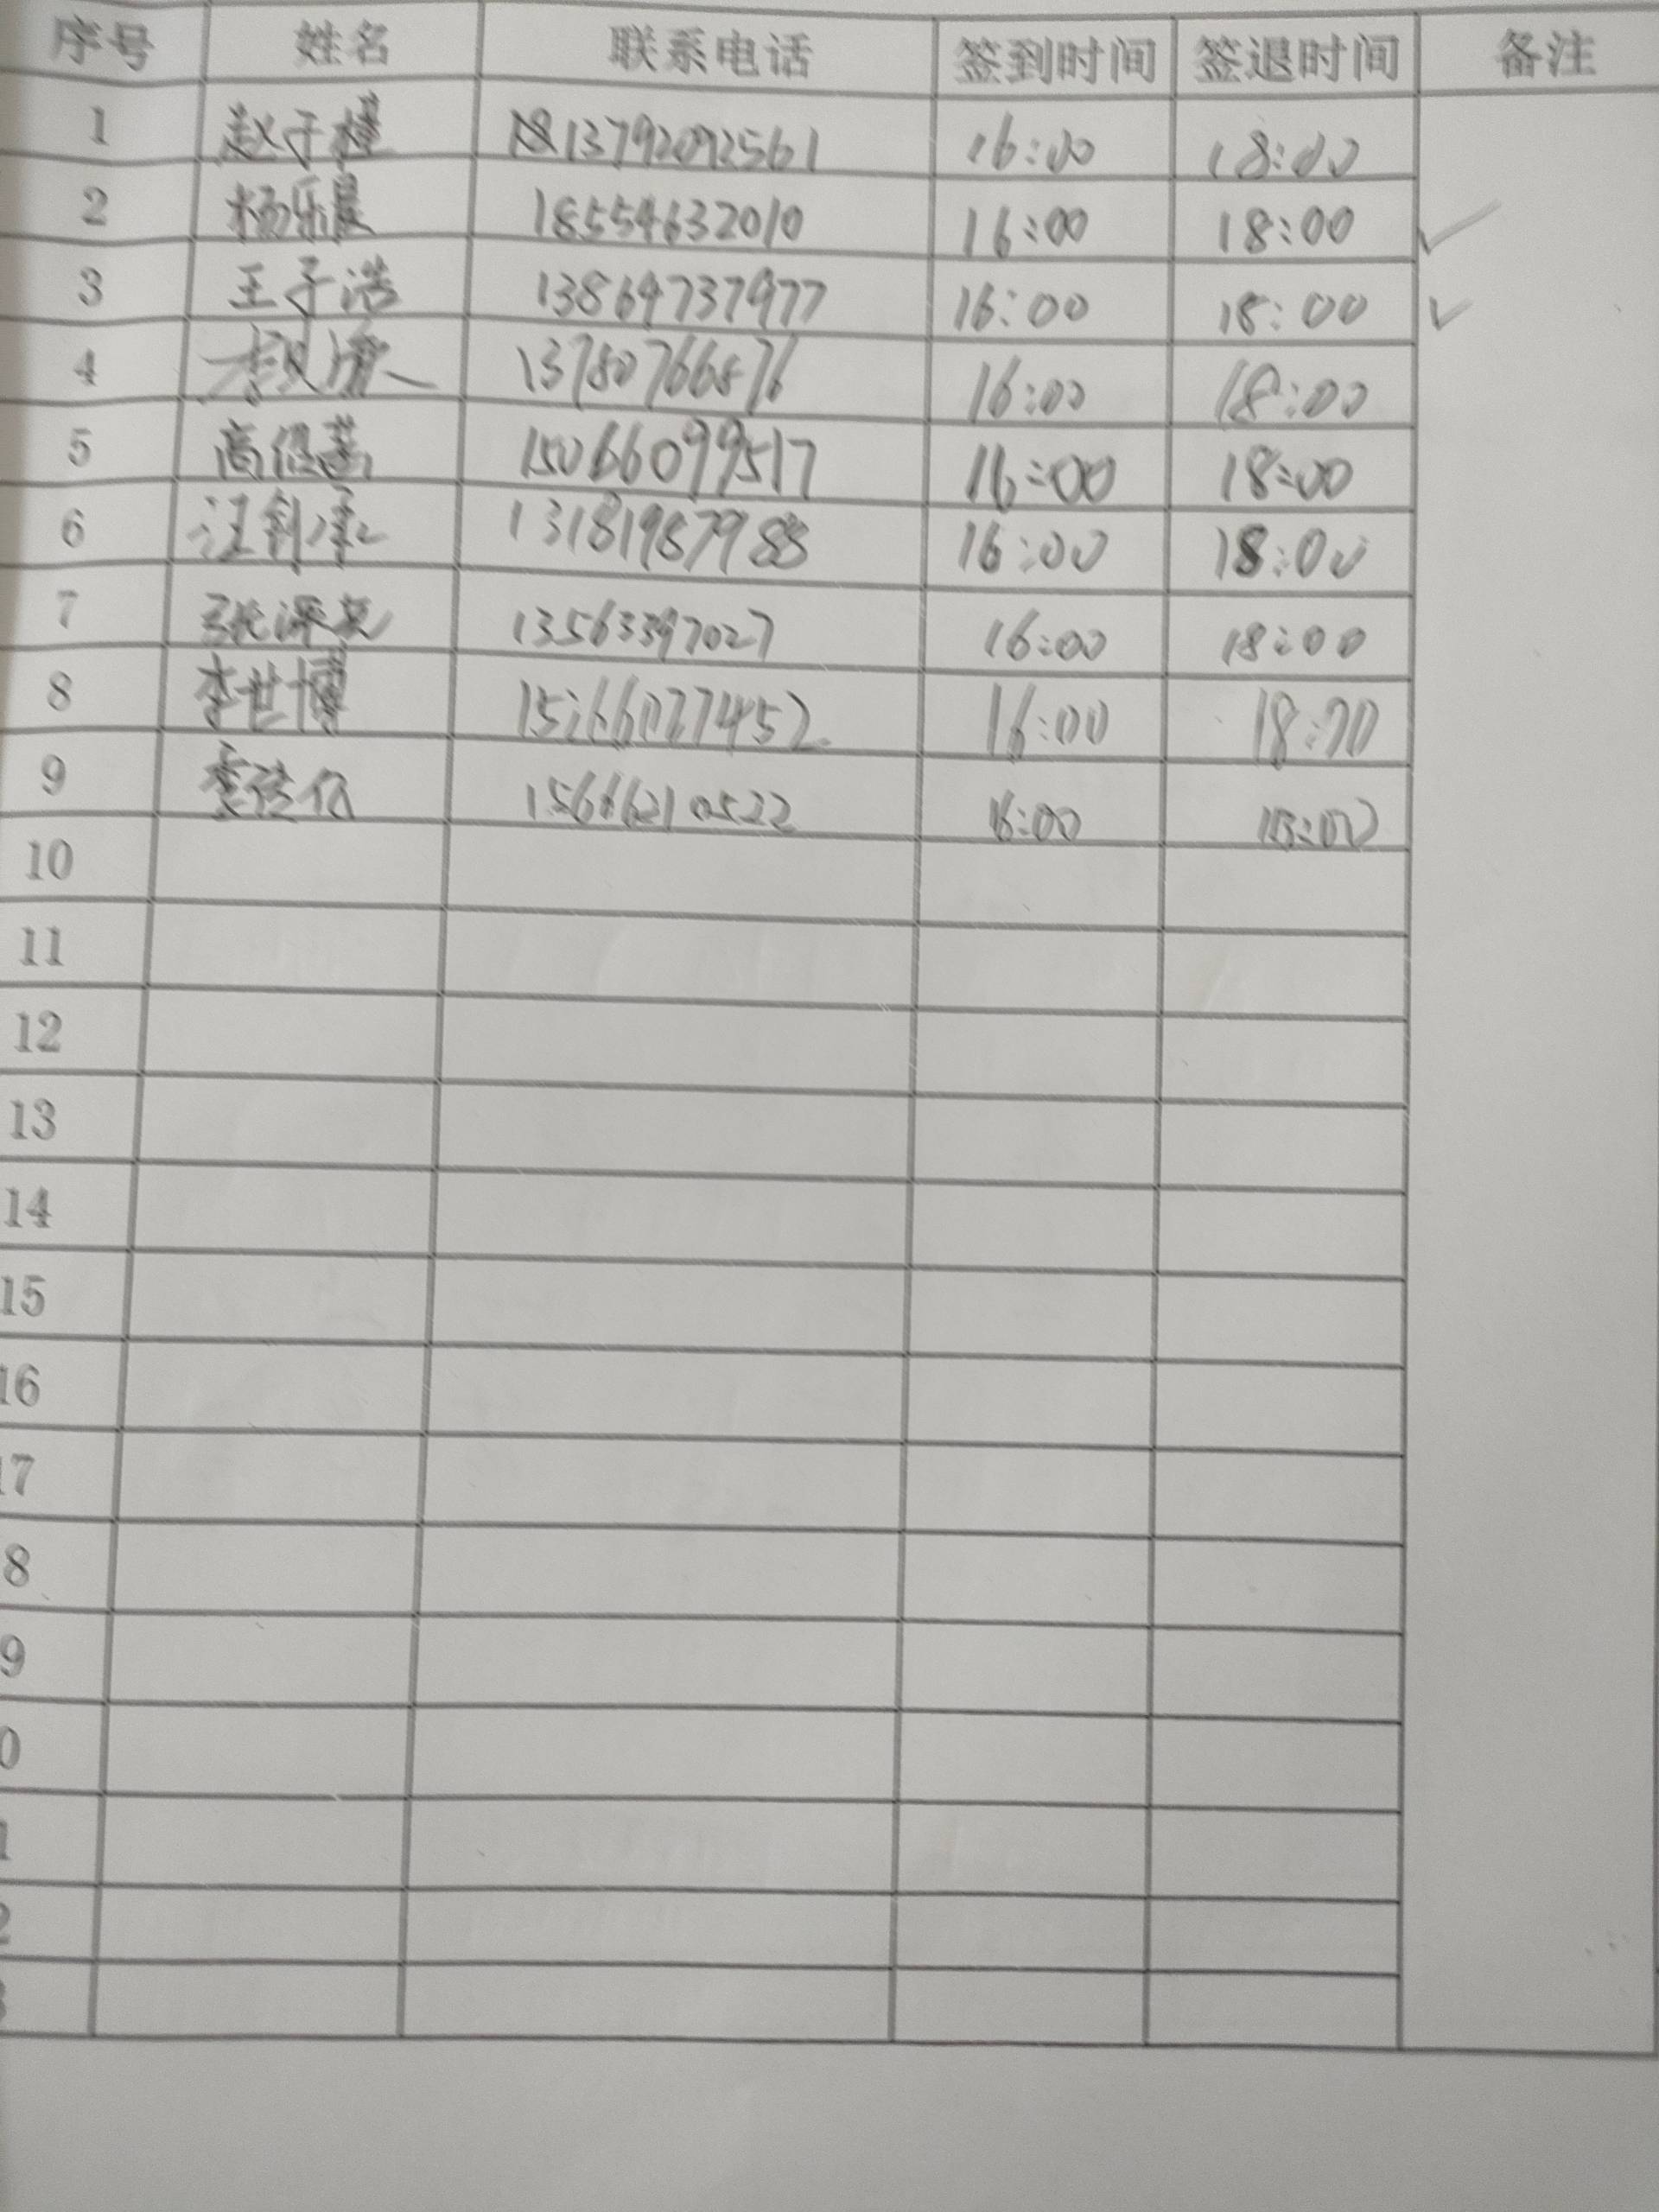 序号 姓名 联系电话 签到时间 签退时间 备注
1 赵子槿 13792092561 16:00 18:00
2 杨乐晨 18554632010 16:00 18:00 ✓
3 王子浩 13864737977 16:00 18:00 ✓
4 13780766876 16:00 18:00
5 高 15066099517 16:00 18:00
6 汪 13181987988 16:00 18:00
7 张 13563397027 16:00 18:00
8 李世博 16:00 18:00
9 15666210522 16:00 18:00
10
11
12
13
14
15
16
17
8
9
0
1
2